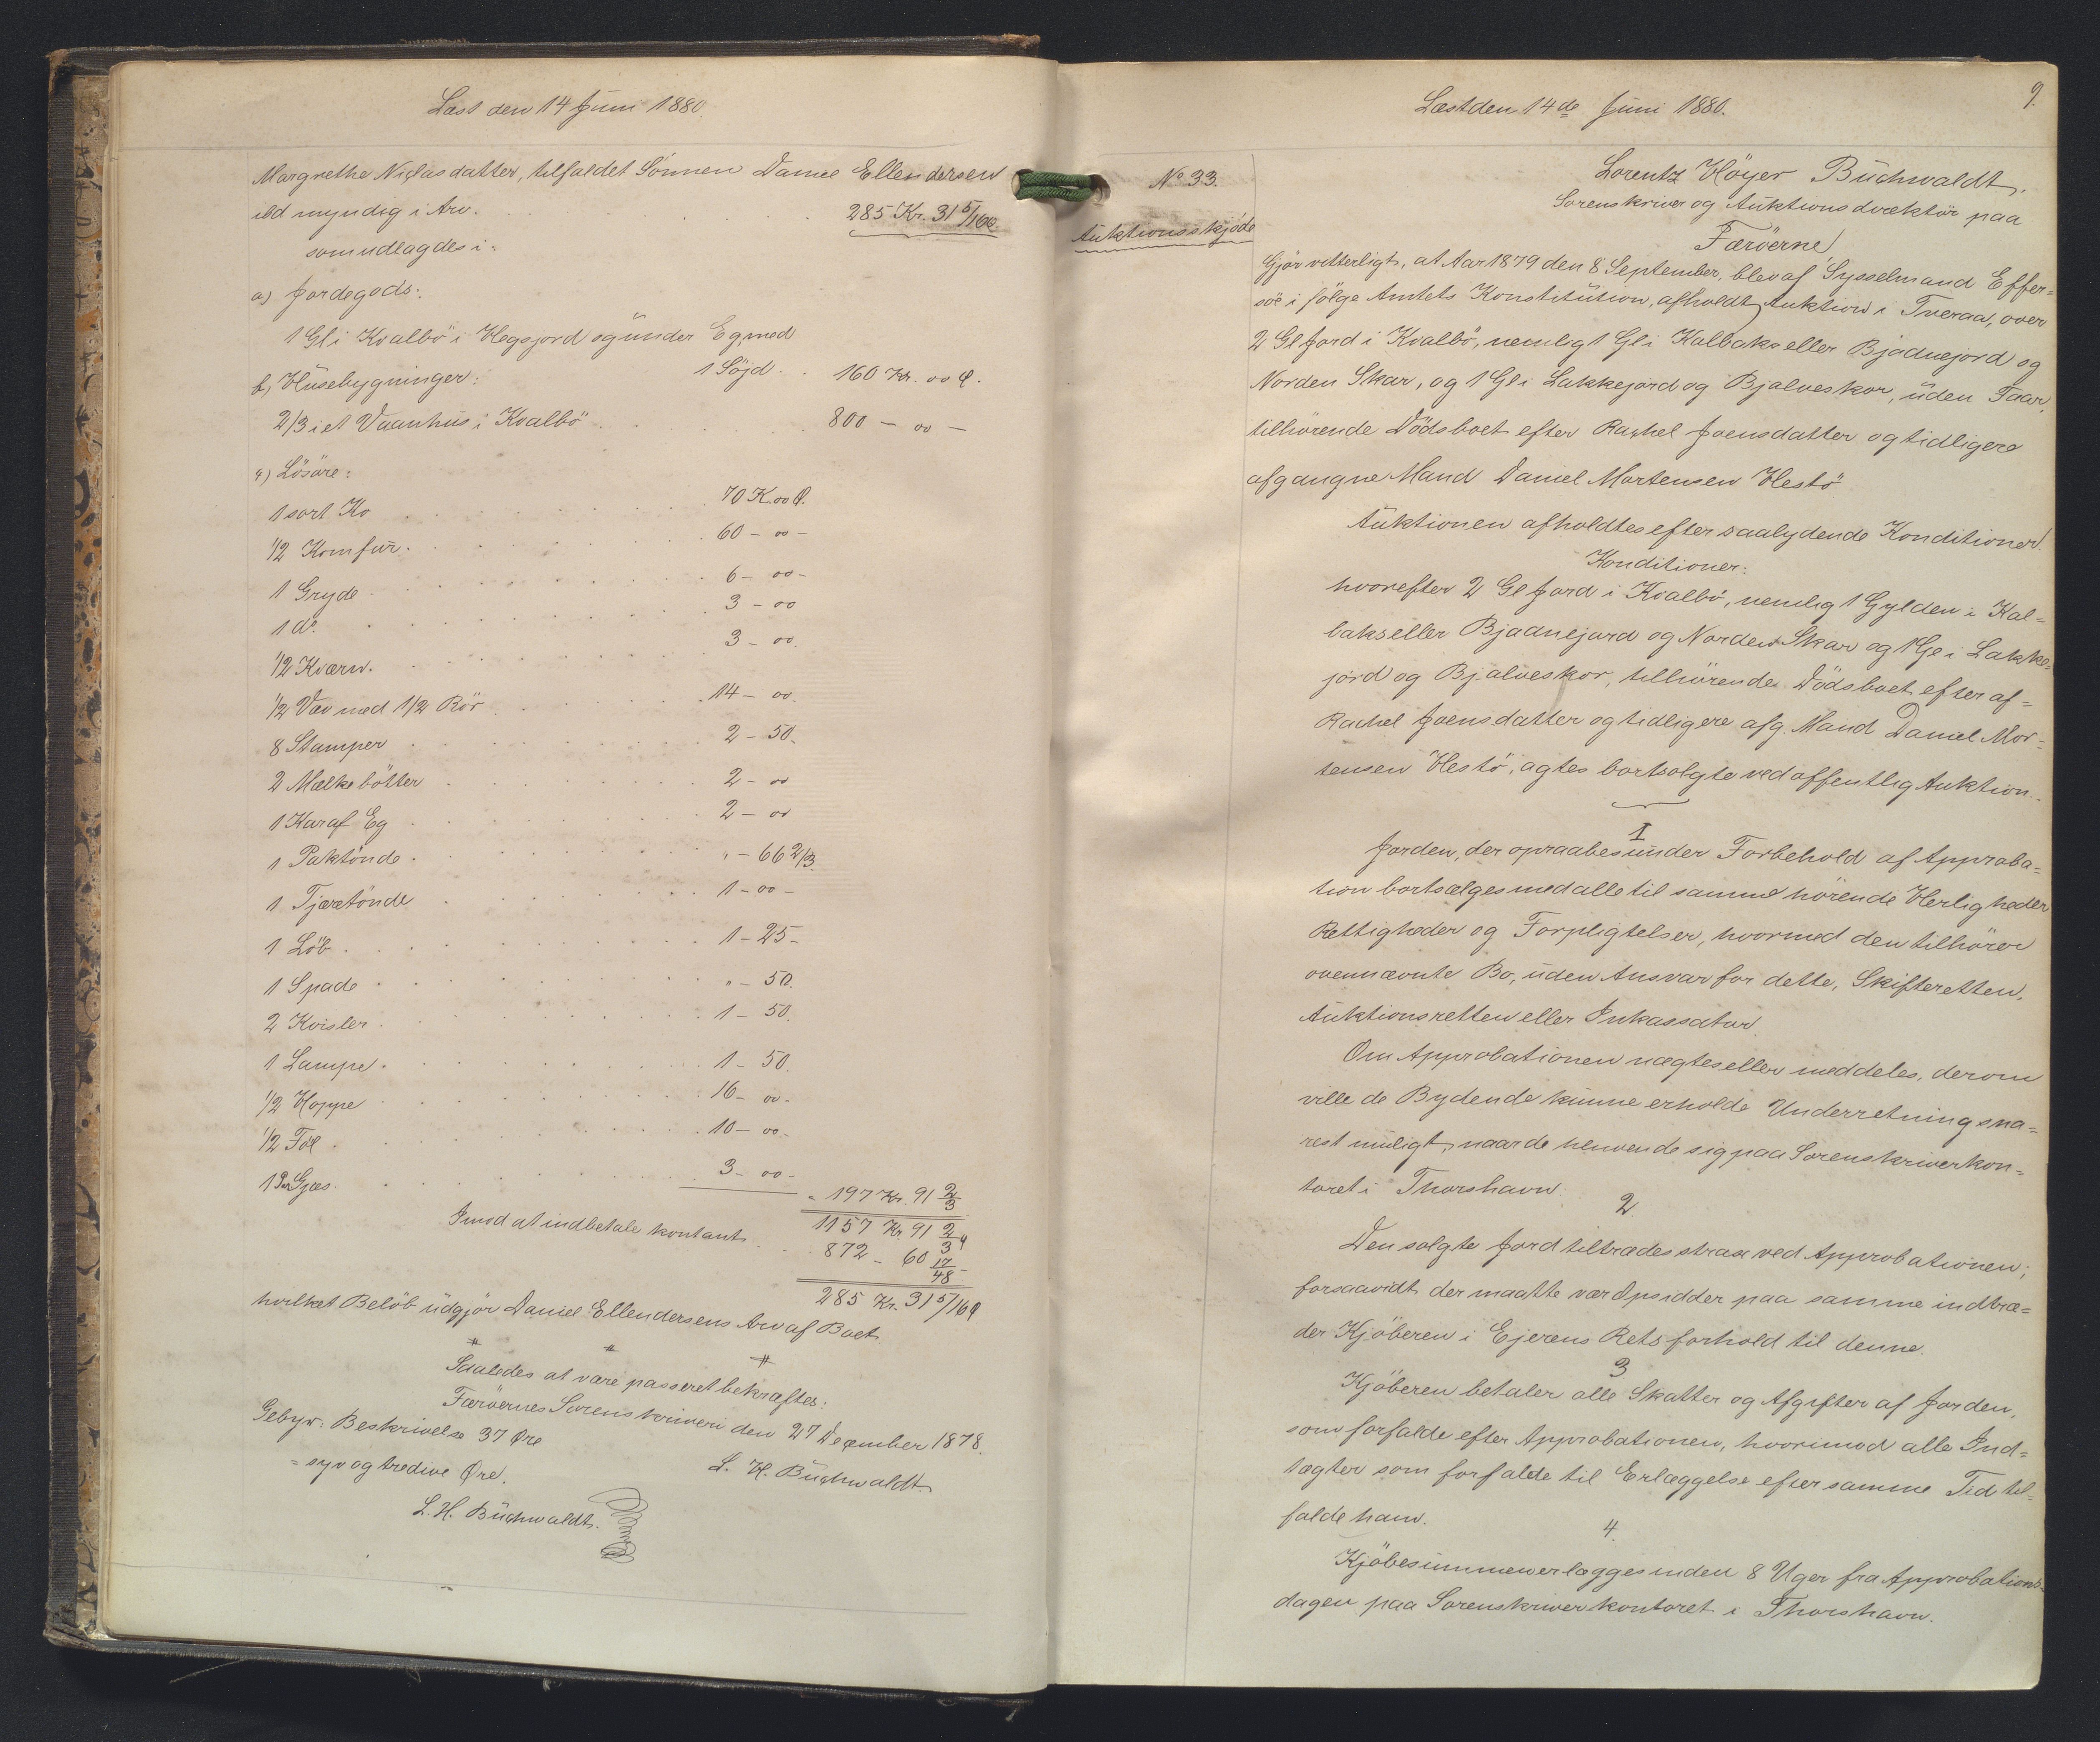 Læst den 14 Juni 1880.
Margrethe Niclasdatter, tilfaldet Sönnen Daniel Ellendersen
ild myndig i Arv. 285 Kr. 31 5/16 Ø
som udlagdes i:
a) Jordegods:
1 Gl i Kvalbö i Hegsjord og under Eg, med
1 Söjd. 160 Kr. 00 Ø.
b) Husebygninger:
2/3 i et Vaanhus i Kvalbö 800 — 00 —
c) Lösöre:
1 sort Ko 70 K. 00 Ø.
1/2 Komfur. 60 — 00 —
1 Gryde 6 — 00 —
1 do. 3 — 00
1/2 Kværn. 3 — 00.
1/2 Væv med 1/2 Rör 14 — 00.
8 Stamper 2 — 50.
2 Mælkebötter 2 — 00
1 Kar af Eg 2 — 00
1 Paktönde. " — 66 2/3.
1 Tjæretönde 1 — 00 —
1 Löb. 1 — 25 —
1 Spade " — 50.
2 Kvisler. 1 — 50.
1 Lampe. 1 — 50.
1/2 Hoppe 16 — 00.
1/2 Föl 10 — 00.
1 Par Gjæs. 3 — 00 —
197 Kr. 91 2/3
1157 Kr. 91 2/3 Ø
Imod at indbetale kontant 872 — 60 17/48 —
285 Kr. 31 5/16 Ø
hvilket Belöb udgjör Daniel Ellendersens Arv af Boet.
# # #
Saaledes at være passeret bekræftes:
Færöernes Sorenskriveri den 27 December 1878.
L. H. Buchwaldt.
Gebyr: Beskrivelse 37 Øre
= syv og tredive Øre.
L. H. Buchwaldt.
9.
Læst den 14de Juni 1880.
No 33.
Auktionsskjöde
Lorentz Höyer Buchwaldt,
Sorenskriver og Auktionsdirektör paa
Færöerne
Gjör vitterligt, at Aar 1879 den 8 September, blev af Sysselmand Effer=
söe i fölge Amtets Konstitution, afholdt Auktion i Tveraa, over
2 Gl Jord i Kvalbö, nemlig 1 Gl i Kalbaks eller Bjadnejord og
Norden Skar, og 1 Gl i Lakkejord og Bjalveskor, uden Faar,
tilhörende Dödsboet efter Rachel Joensdatter og tidligere
afgangne Mand Daniel Mortensen Hestö
Auktionen afholdtes efter saalydende Konditioner
Konditioner:
hvorefter 2 Gl Jord i Kvalbö, nemlig 1 Gylden i Kal=
baks eller Bjadnejord og Norden Skar og 1 Gl i Lakke=
jord og Bjalveskor, tilhörende Dödsboet efter af=
Rachel Joensdatter og tidligere afg. Mand Daniel Mor=
tensen Hestö, agtes bortsolgte ved offentlig Auktion.
1
Jorden, der opraabes under Forbehold af Approba=
tion bortsælges med alle til samme hörende Herligheder
Rettigheder og Forpligtelser, hvormed den tilhörer
ovennævnte Bo, uden Ansvar for dette, Skifteretten,
Auktionsretten eller Inkassator
Om Approbationen nægtes eller meddeles, derom
ville de Bydende kunne erholde Underretning sna=
rest muligt, naar de henvende sig paa Sorenskriverkon=
toret i Thorshavn
2.
Den solgte Jord tiltrædes strax ved Approbationen;
forsaavidt der maatte være Opsidder paa samme indtræ=
der Kjöberen i Ejerens Retsforhold til denne.
3
Kjöberen betaler alle Skatter og Afgifter af Jorden,
som forfalde efter Approbationen, hvorimod alle Ind=
tægter som forfalde til Erlæggelse efter samme Tid til=
falde ham.
4.
Kjöbesummen erlægges inden 8 Uger fra Approbations=
dagen paa Sorenskriverkontoret i Thorshavn.